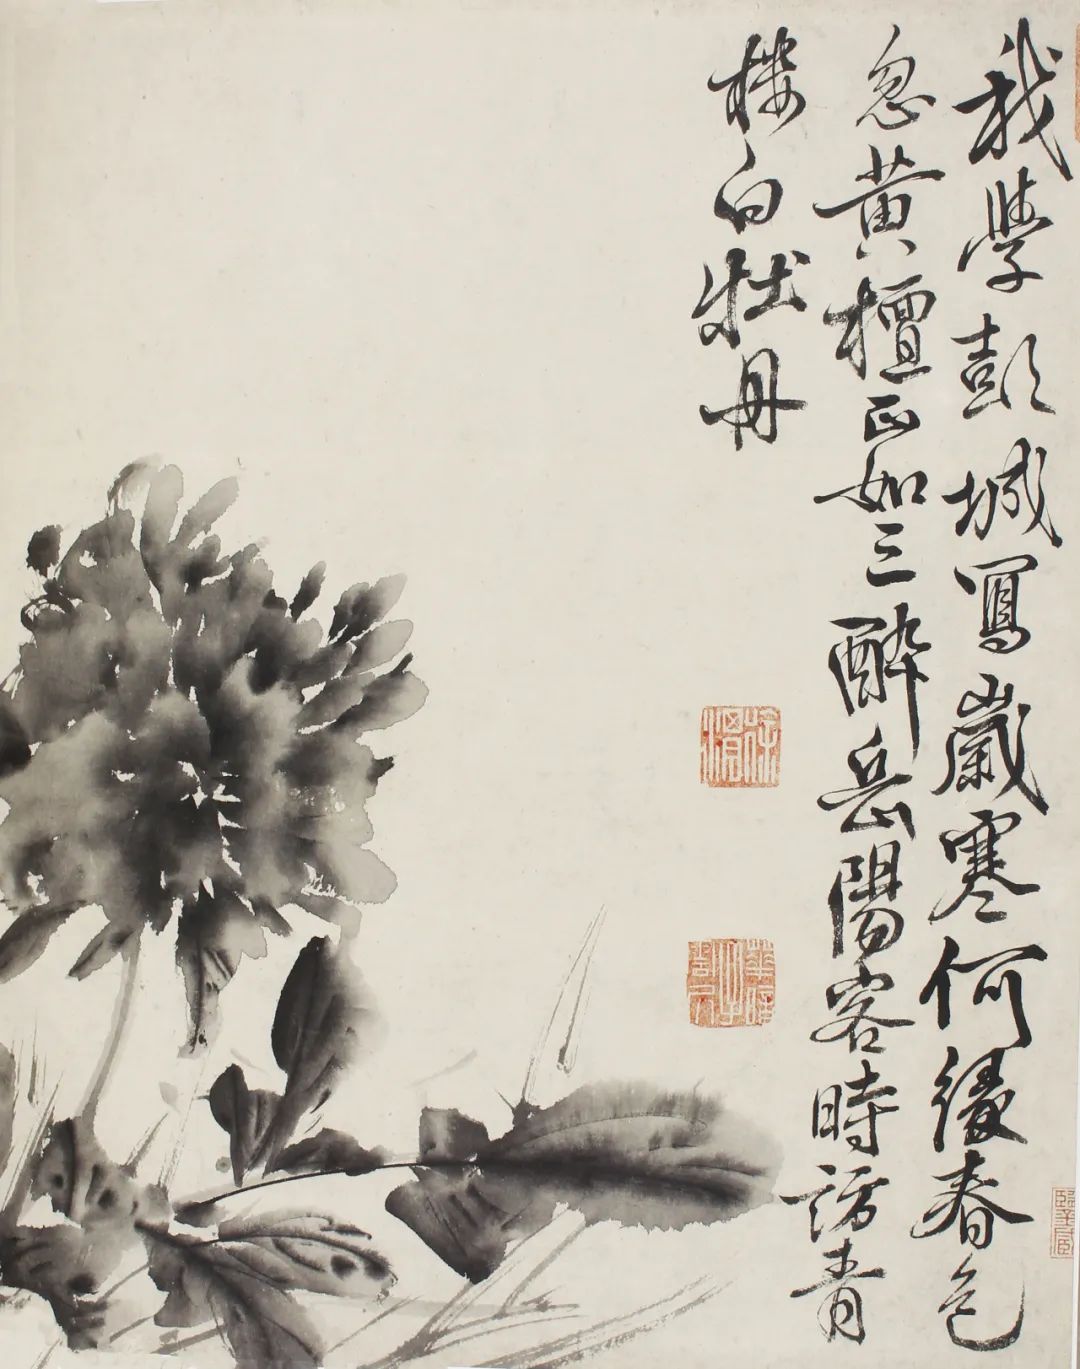 我學彭城寫歲寒何緣春色
忽黃檀正如三醉岳陽客時訪青
樓白牡丹
徐渭